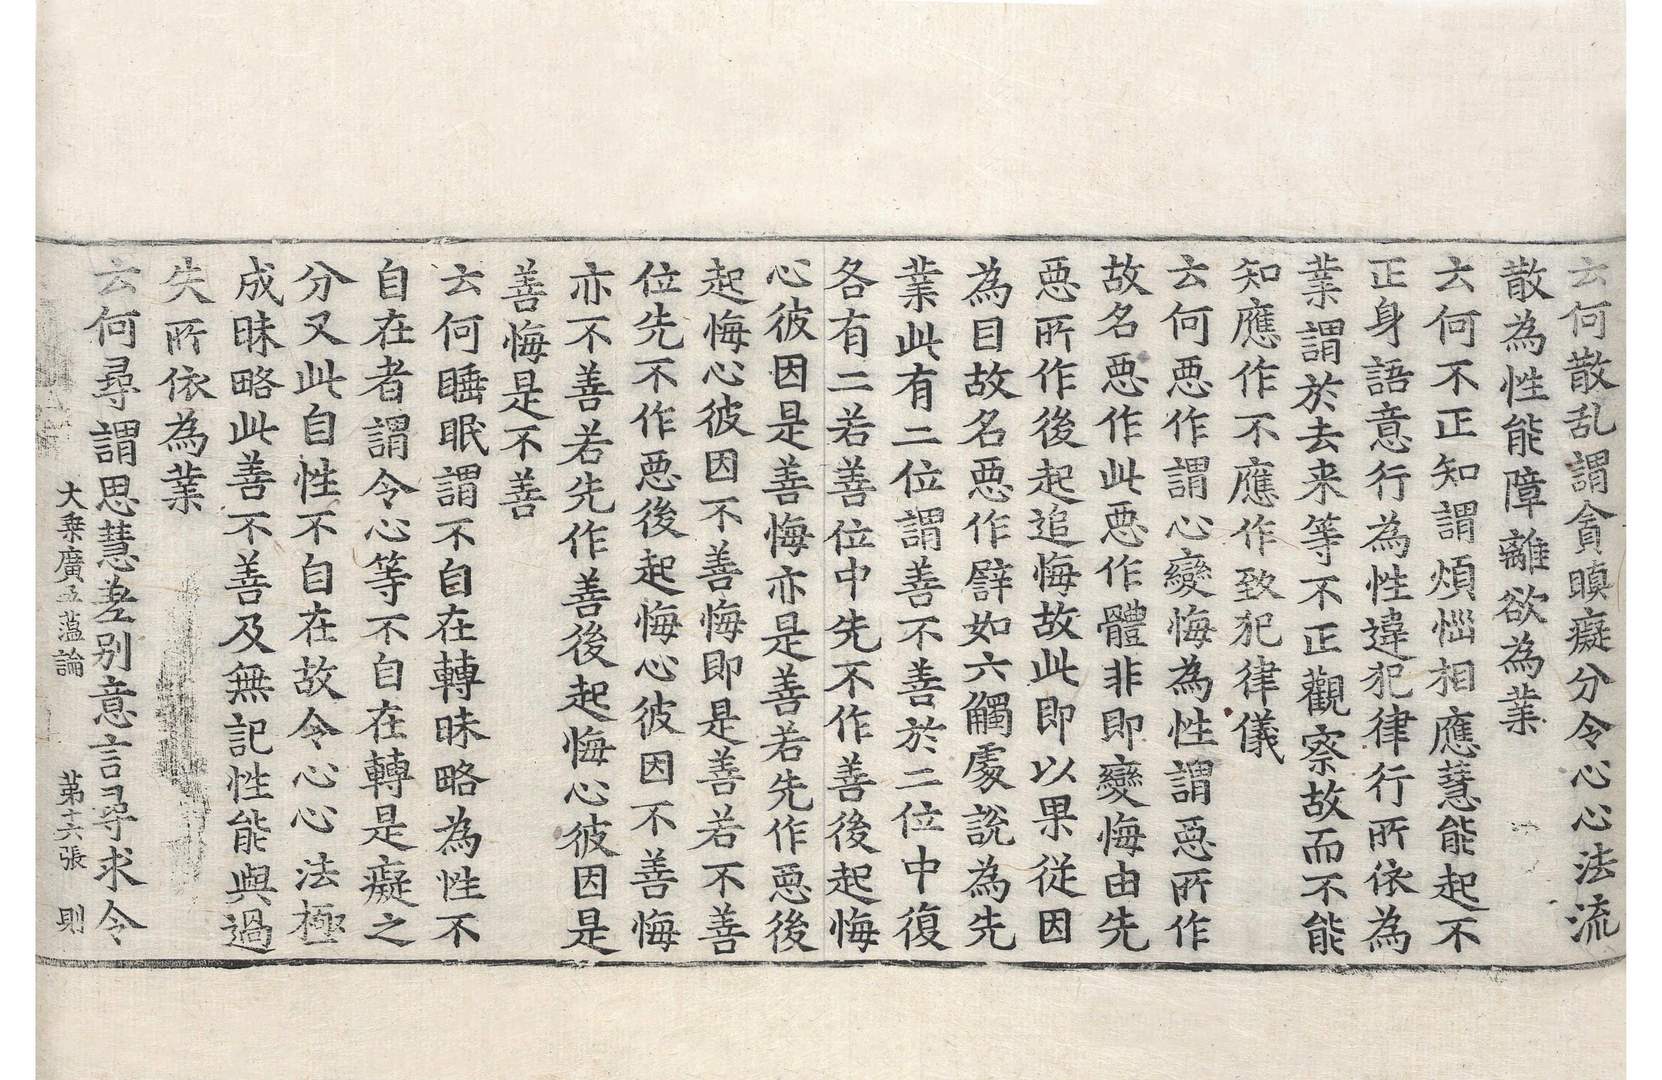 云何散乱謂貪瞋癡分令心心法流
散為性能障離欲為業
云何不正知謂煩惱相應慧能起不
正身語意行為性違犯律行所依為
業謂於去来等不正觀察故而不能
知應作不應作致犯律儀
云何惡作謂心變悔為性謂惡所作
故名惡作此惡作體非即變悔由先
惡所作後起追悔故此即以果從因
為目故名惡作譬如六觸處說為先
業此有二位謂善不善於二位中復
各有二若善位中先不作善後起悔
心彼因是善悔亦是善若先作惡後
起悔心彼因不善悔即是善若不善
位先不作惡後起悔心彼因不善悔
亦不善若先作善後起悔心彼因是
善悔是不善
云何睡眠謂不自在轉昧略為性不
自在者謂令心等不自在轉是癡之
分又此自性不自在故令心心法極
成昧略此善不善及無記性能與過
失所依為業
云何尋謂思慧差别意言尋求令
大乗廣五蕰論 苐十六張 則